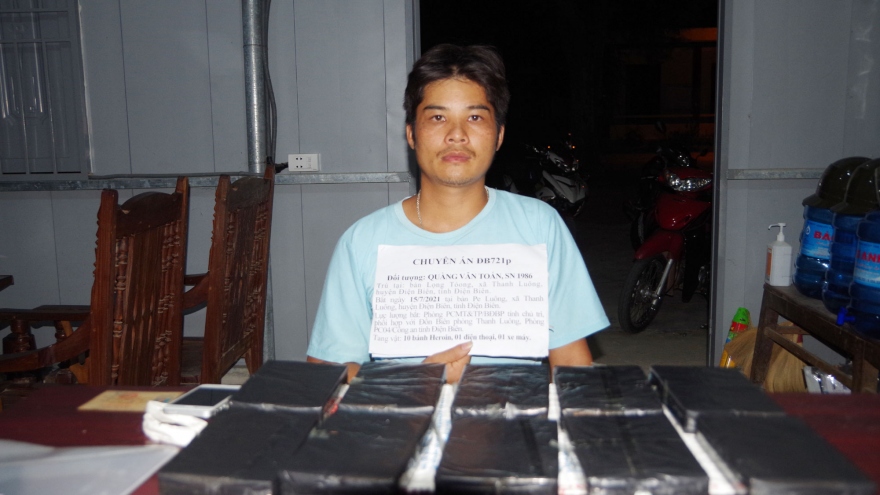 CHUYÊN ÁN ĐB721p
Đối tượng: QUÀNG VĂN TOÁN, SN 1986
Trú tại: bản Lọng Tóong, xã Thanh Luông,
huyện Điện Biên, tỉnh Điện Biên.
Bắt ngày 15/7/2021 tại bản Pe Luông, xã Thanh
Luông, huyện Điện Biên, tỉnh Điện Biên.
Lực lượng bắt: Phòng PCMT&TP/BĐBP tỉnh chủ trì,
phối hợp với Đồn Biên phòng Thanh Luông, Phòng
PC04/Công an tỉnh Điện Biên.
Tang vật: 10 bánh Heroin, 01 điện thoại, 01 xe máy.